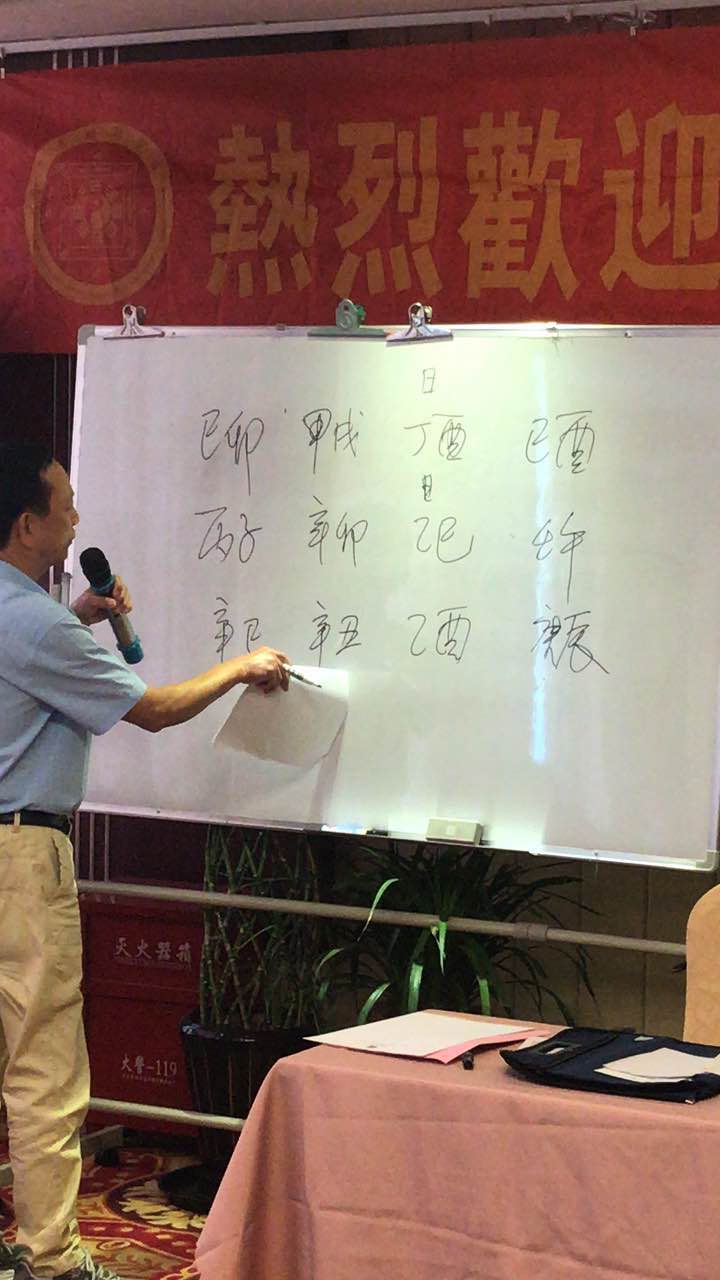 熱烈歡迎
日
己卯 甲戌 丁酉 己酉
日
丙子 辛卯 乙巳 壬午
辛巳 辛丑 乙酉 庚辰
灭火器箱
火警-119